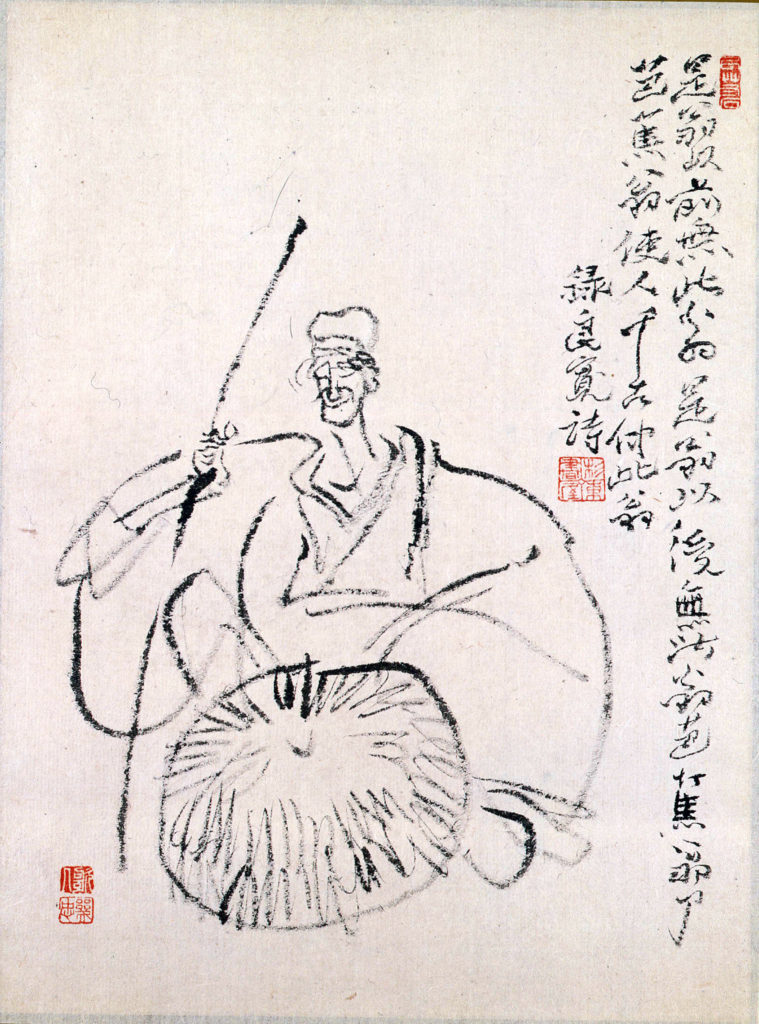 是翁以前無此翁是翁以後無此翁芭蕉翁兮
芭蕉翁使人千古仰此翁
録良寛詩